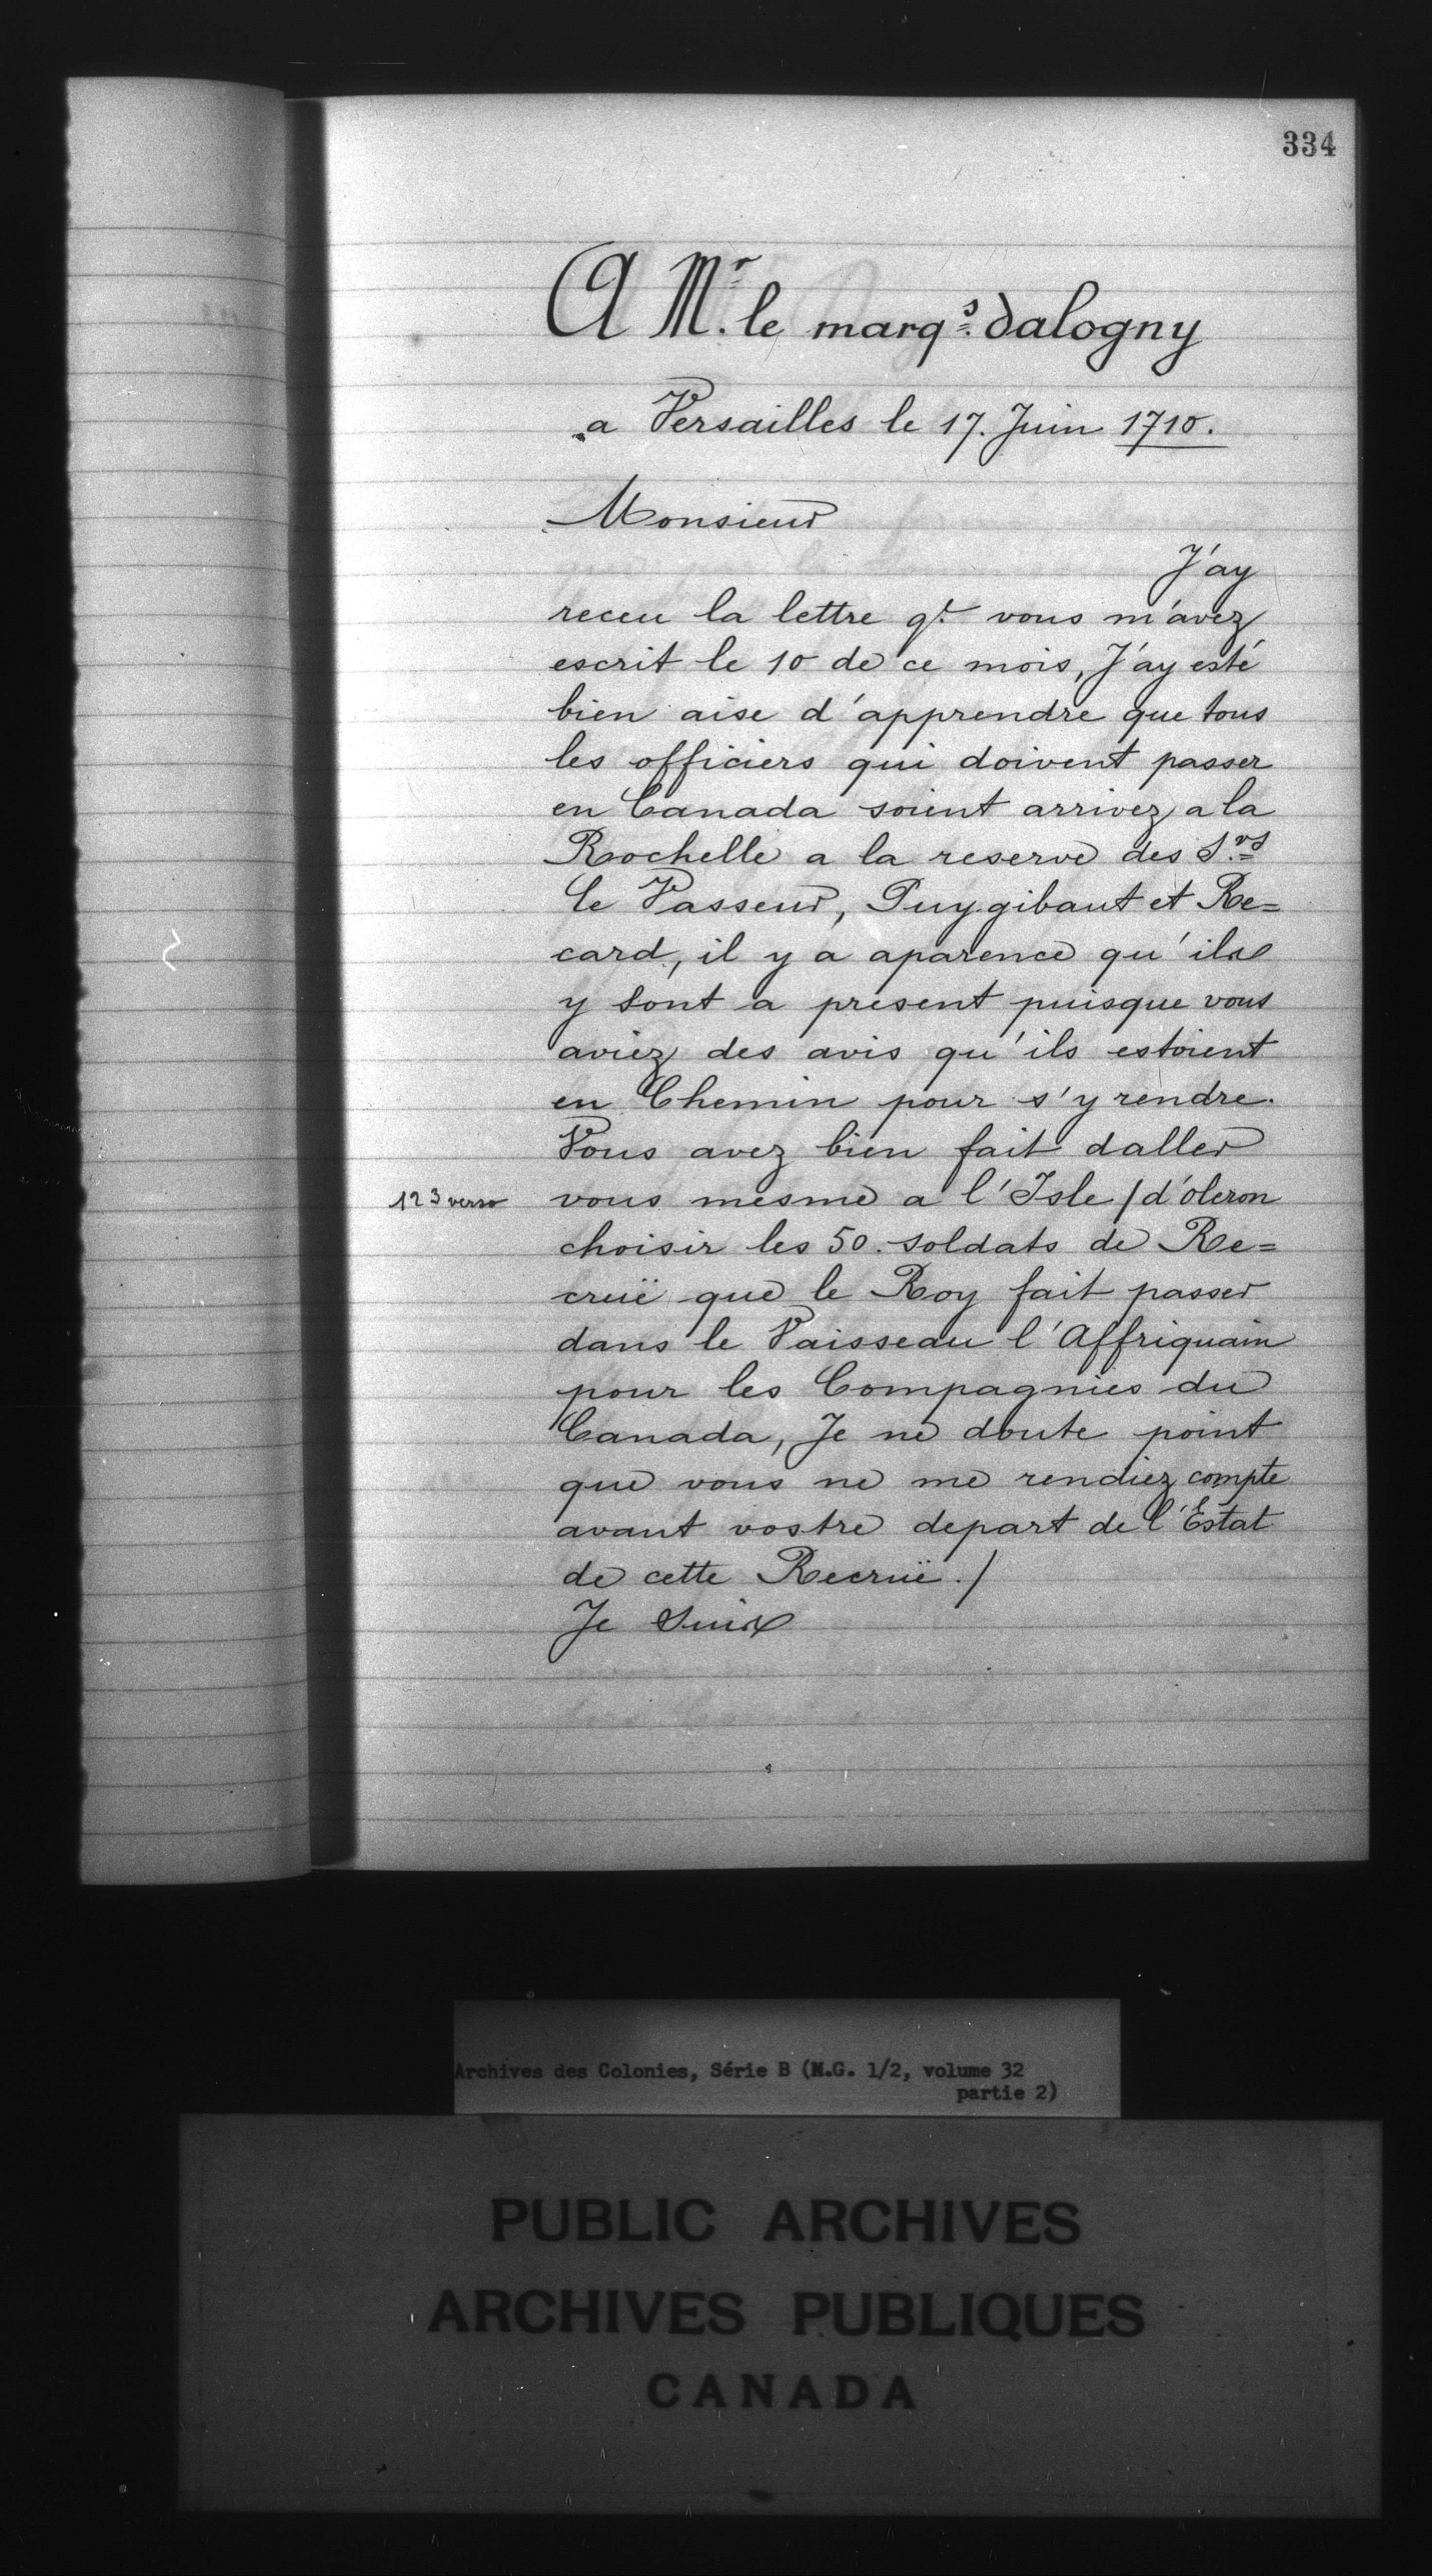 334
A Mr. le marqs. dalogny
a Versailles le 17. Juin 1710.
Monsieur
J'ay
receu la lettre qt. vous m'avez
escrit le 10 de ce mois, J'ay esté
bien aise d'apprendre que tous
les officiers qui doivent passer
en Canada soient arrivez a la
Rochelle a la reserve des S.rs
le Vasseur, Puygibaut et Re=
card, il y a aparence qu'ils
y sont a present puisque vous
aviez des avis qu'ils estoient
en Chemin pour s'y rendre.
Vous avez bien fait daller
123 verso vous mesme a l'Isle / d'oleron
choisir les 50. soldats de Re=
cruë que le Roy fait passer
dans le Vaisseau l'Affriquain
pour les Compagnies du
Canada, Je ne doute point
que vous ne me rendiez compte
avant vostre depart de l'Estat
de cette Recruë ./
Je suis
Archives des Colonies, Série B (M.G. 1/2, volume 32
partie 2)
PUBLIC ARCHIVES
ARCHIVES PUBLIQUES
CANADA